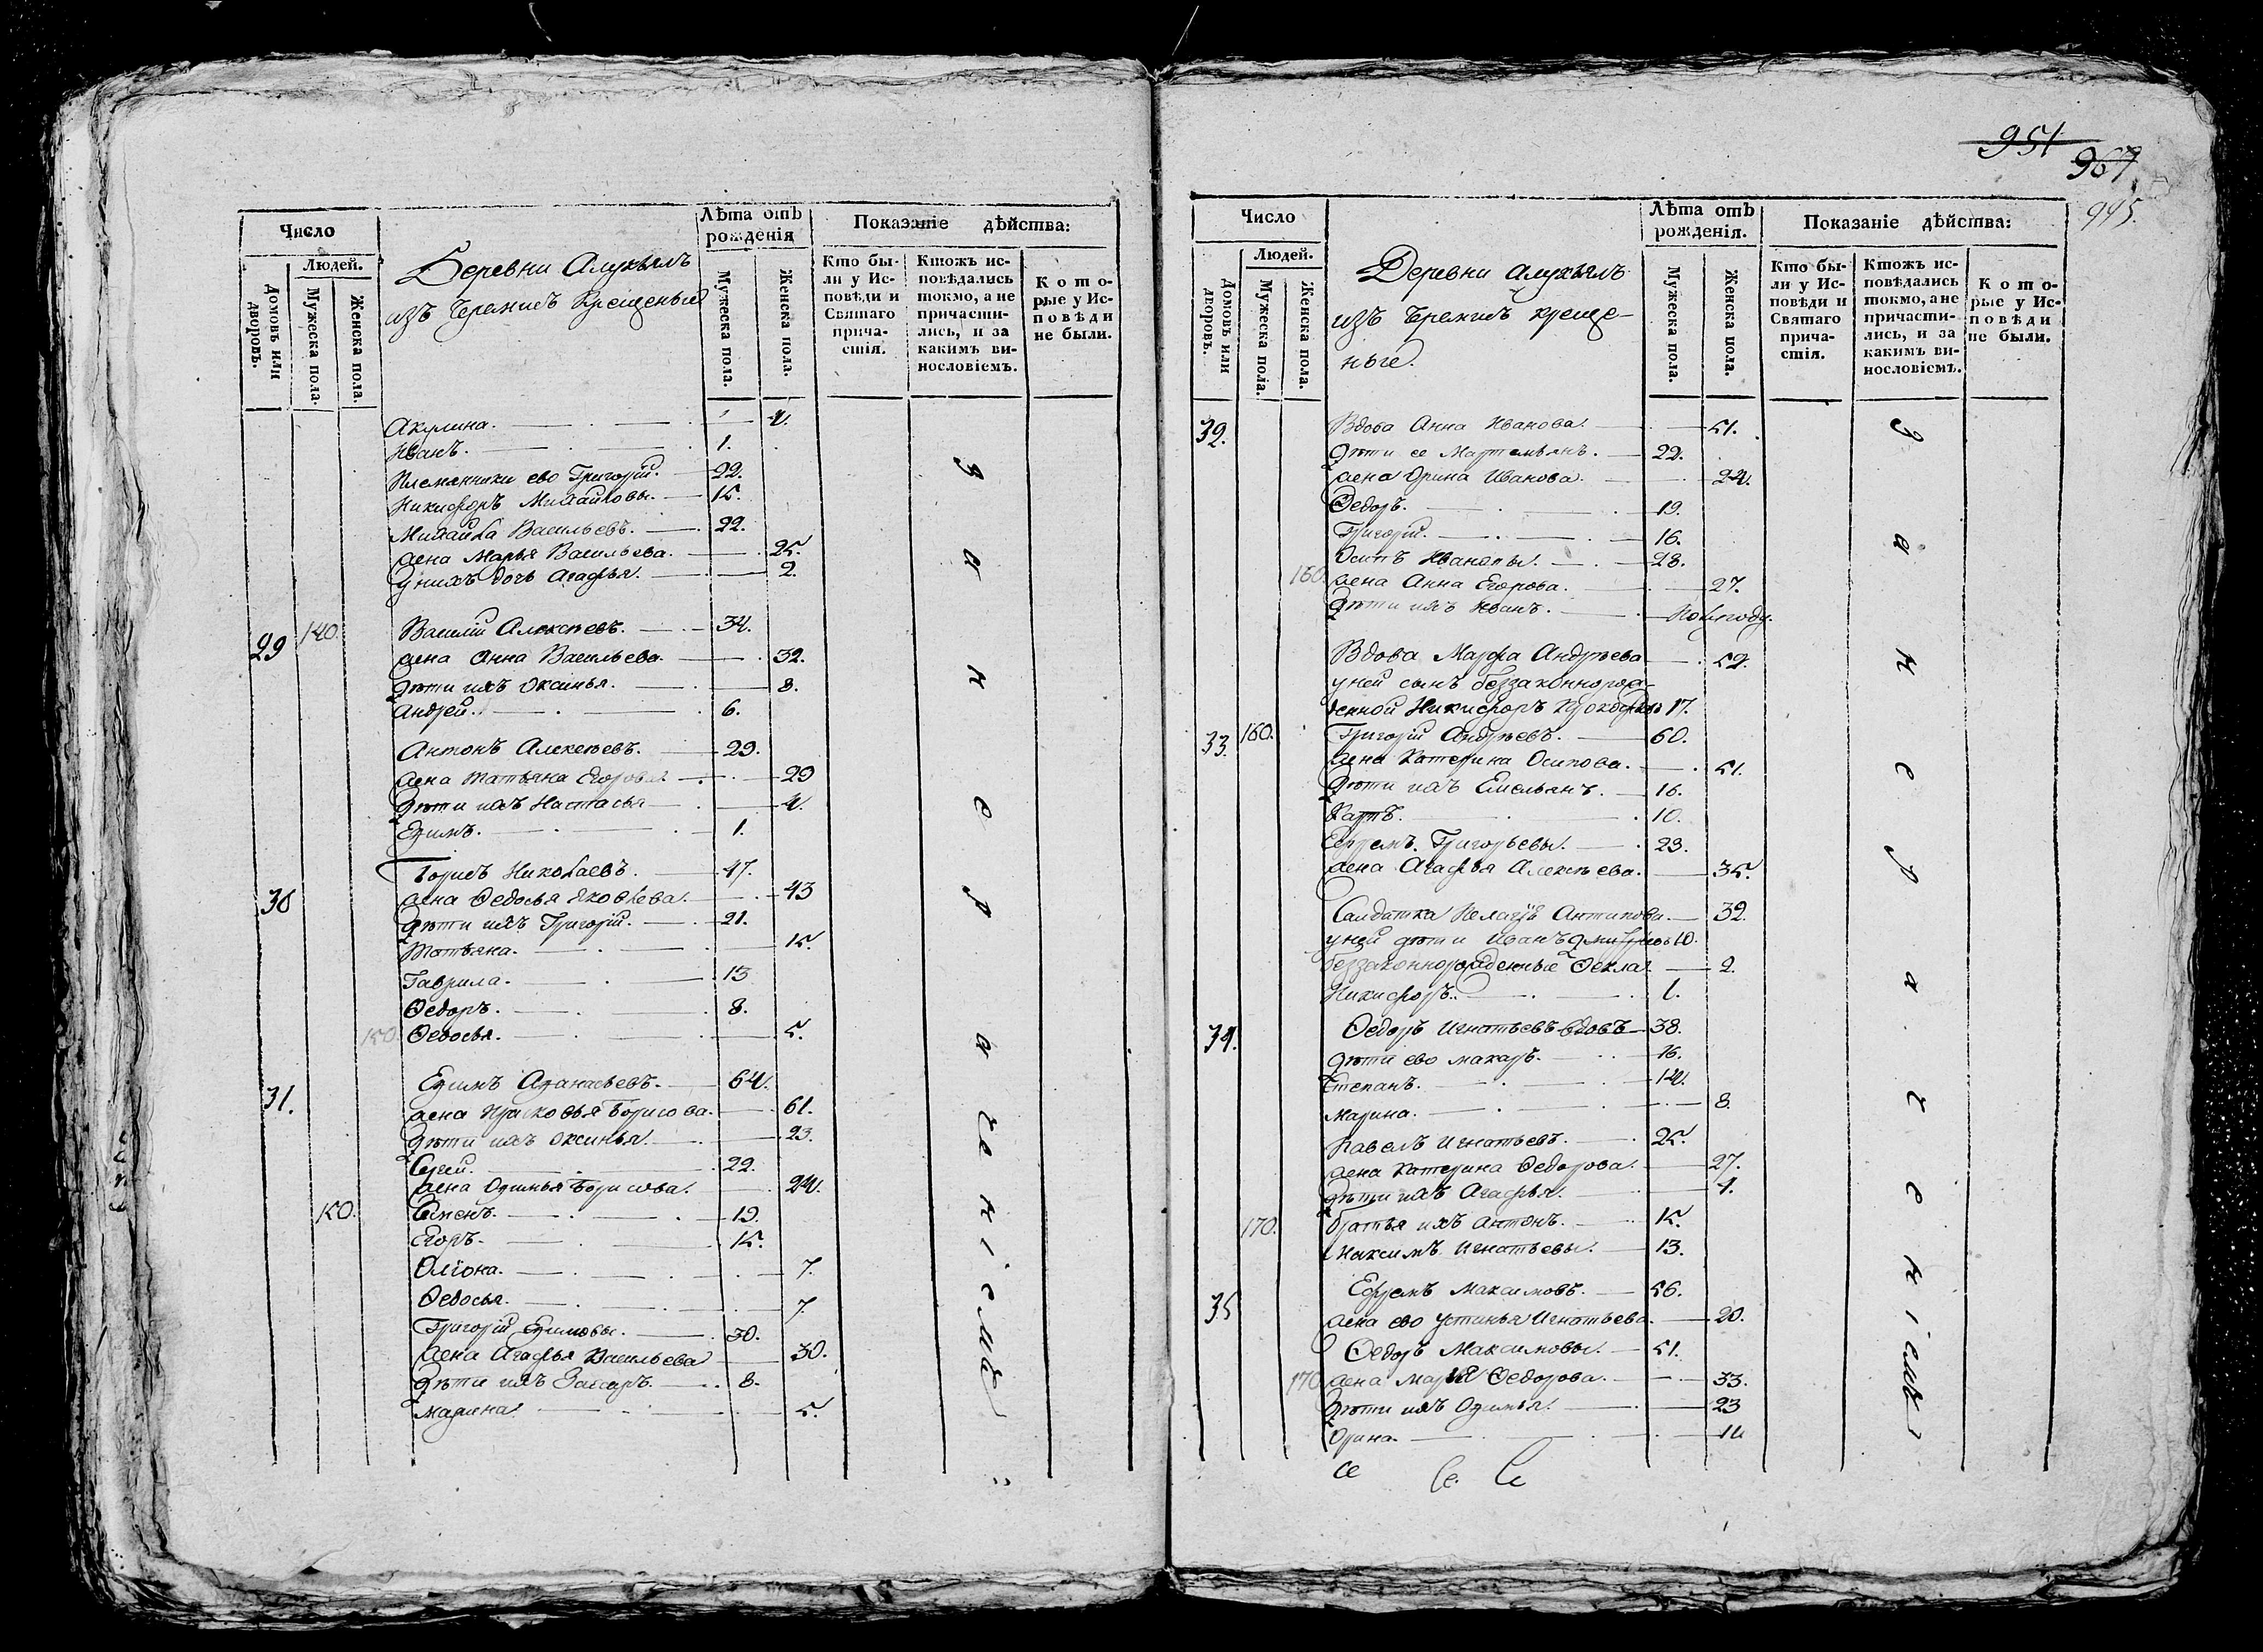 Число
Людей.
Домовъ или дворовъ.
Мужеска пола.
Женска пола.
Деревни
изъ Черемисъ Крещеныя
Лѣта отъ рожденія
Мужеска пола.
Женска пола.
Показаніе дѣйства:
Кто были у Исповѣди и Святаго причастія.
Ктожъ исповѣдались токмо, а не причастились, и за какимъ винословіемъ.
Которые у Исповѣди не были.
Акулина. 4.
Иванъ. 1.
Племянники ево Григорій. 22.
Никифоръ Михайловы. 15.
Михайла Васильевъ. 22.
жена Марья Васильева. 25.
у нихъ дочь Агафья. 2.
29 140. Василій Алексѣевъ. 34.
жена Анна Васильева. 32.
дѣти ихъ Оксинья. 8.
Андрей. 6.
Антонъ Алексѣевъ. 29.
жена Татьяна Егорова 29
дѣти ихъ Настасья 4.
Ефимъ. 1.
30 Борисъ Николаевъ. 47.
жена Федосья Яковлева. 43
дѣти ихъ Григорій. 21.
Татьяна. 15.
Гаврила. 13
Федоръ. 8.
150 Федосья. 5.
31. Ефимъ Афанасьевъ. 64.
жена Прасковья Борисова. 61.
дѣти ихъ Оксинья. 23.
Сергей. 22.
жена Офимья Борисова. 24.
150. Семенъ. 19.
Егоръ. 15.
Олiона. 7.
Федосья. 7.
Григорій Ефимовы. 30.
жена Агафья Васильева 30.
дѣти ихъ Захаръ. 8.
5.
951
967
945
Число
Людей.
Домовъ или дворовъ.
Мужеска пола.
Женска пола.
Деревни
изъ Черемисъ креще-
ные.
Лѣта отъ рожденія.
Мужеска пола.
Женска пола.
Показаніе дѣйства:
Кто были у Исповѣди и Святаго причастія.
Ктожъ исповѣдались токмо, а не причастились, и за какимъ винословіемъ.
Которые у Исповѣди не были.
32. Вдова Анна Иванова. 51.
дѣти ее Мартемьянъ. 22.
жена Орина Иванова. 24.
Федоръ. 19.
Григорій. 16.
Осипъ Ивановы. 28.
160 жена Анна Егорова. 27.
дѣти ихъ Иванъ. Полугоду.
Вдова Марфа Андрѣева 59.
у ней сынъ беззаконнорож-
денной Никифоръ 17.
33. 160. Григорій Андрѣевъ. 60.
жена Катерина Осипова. 51.
дѣти ихъ Емельянъ. 16.
Карпъ. 10.
Ефремъ Григорьевы. 23.
жена Агафья Алексѣева. 35.
Салдатка Пелагѣя Антипова. 32.
у ней дѣти Иванъ Дмитріевъ 10.
беззаконнорожденные Фекла. 2.
Никифоръ. 1.
34. Федоръ Игнатьевъ вдовъ 38.
дѣти ево Макаръ. 16.
Степанъ. 14.
Марина. 8.
Павелъ Игнатьевъ. 25.
жена Катерина Федорова. 27.
дѣти ихъ Агафья. 4.
170. братья ихъ Антонъ. 15.
Максимъ Игнатьевы. 13.
35 Ефремъ Максимовъ. 56.
жена ево Устинья Игнатьева. 20.
Федоръ Максимовы. 51.
170 жена Марья Федорова. 33.
дѣти ихъ Офимья. 23
Орина. 14